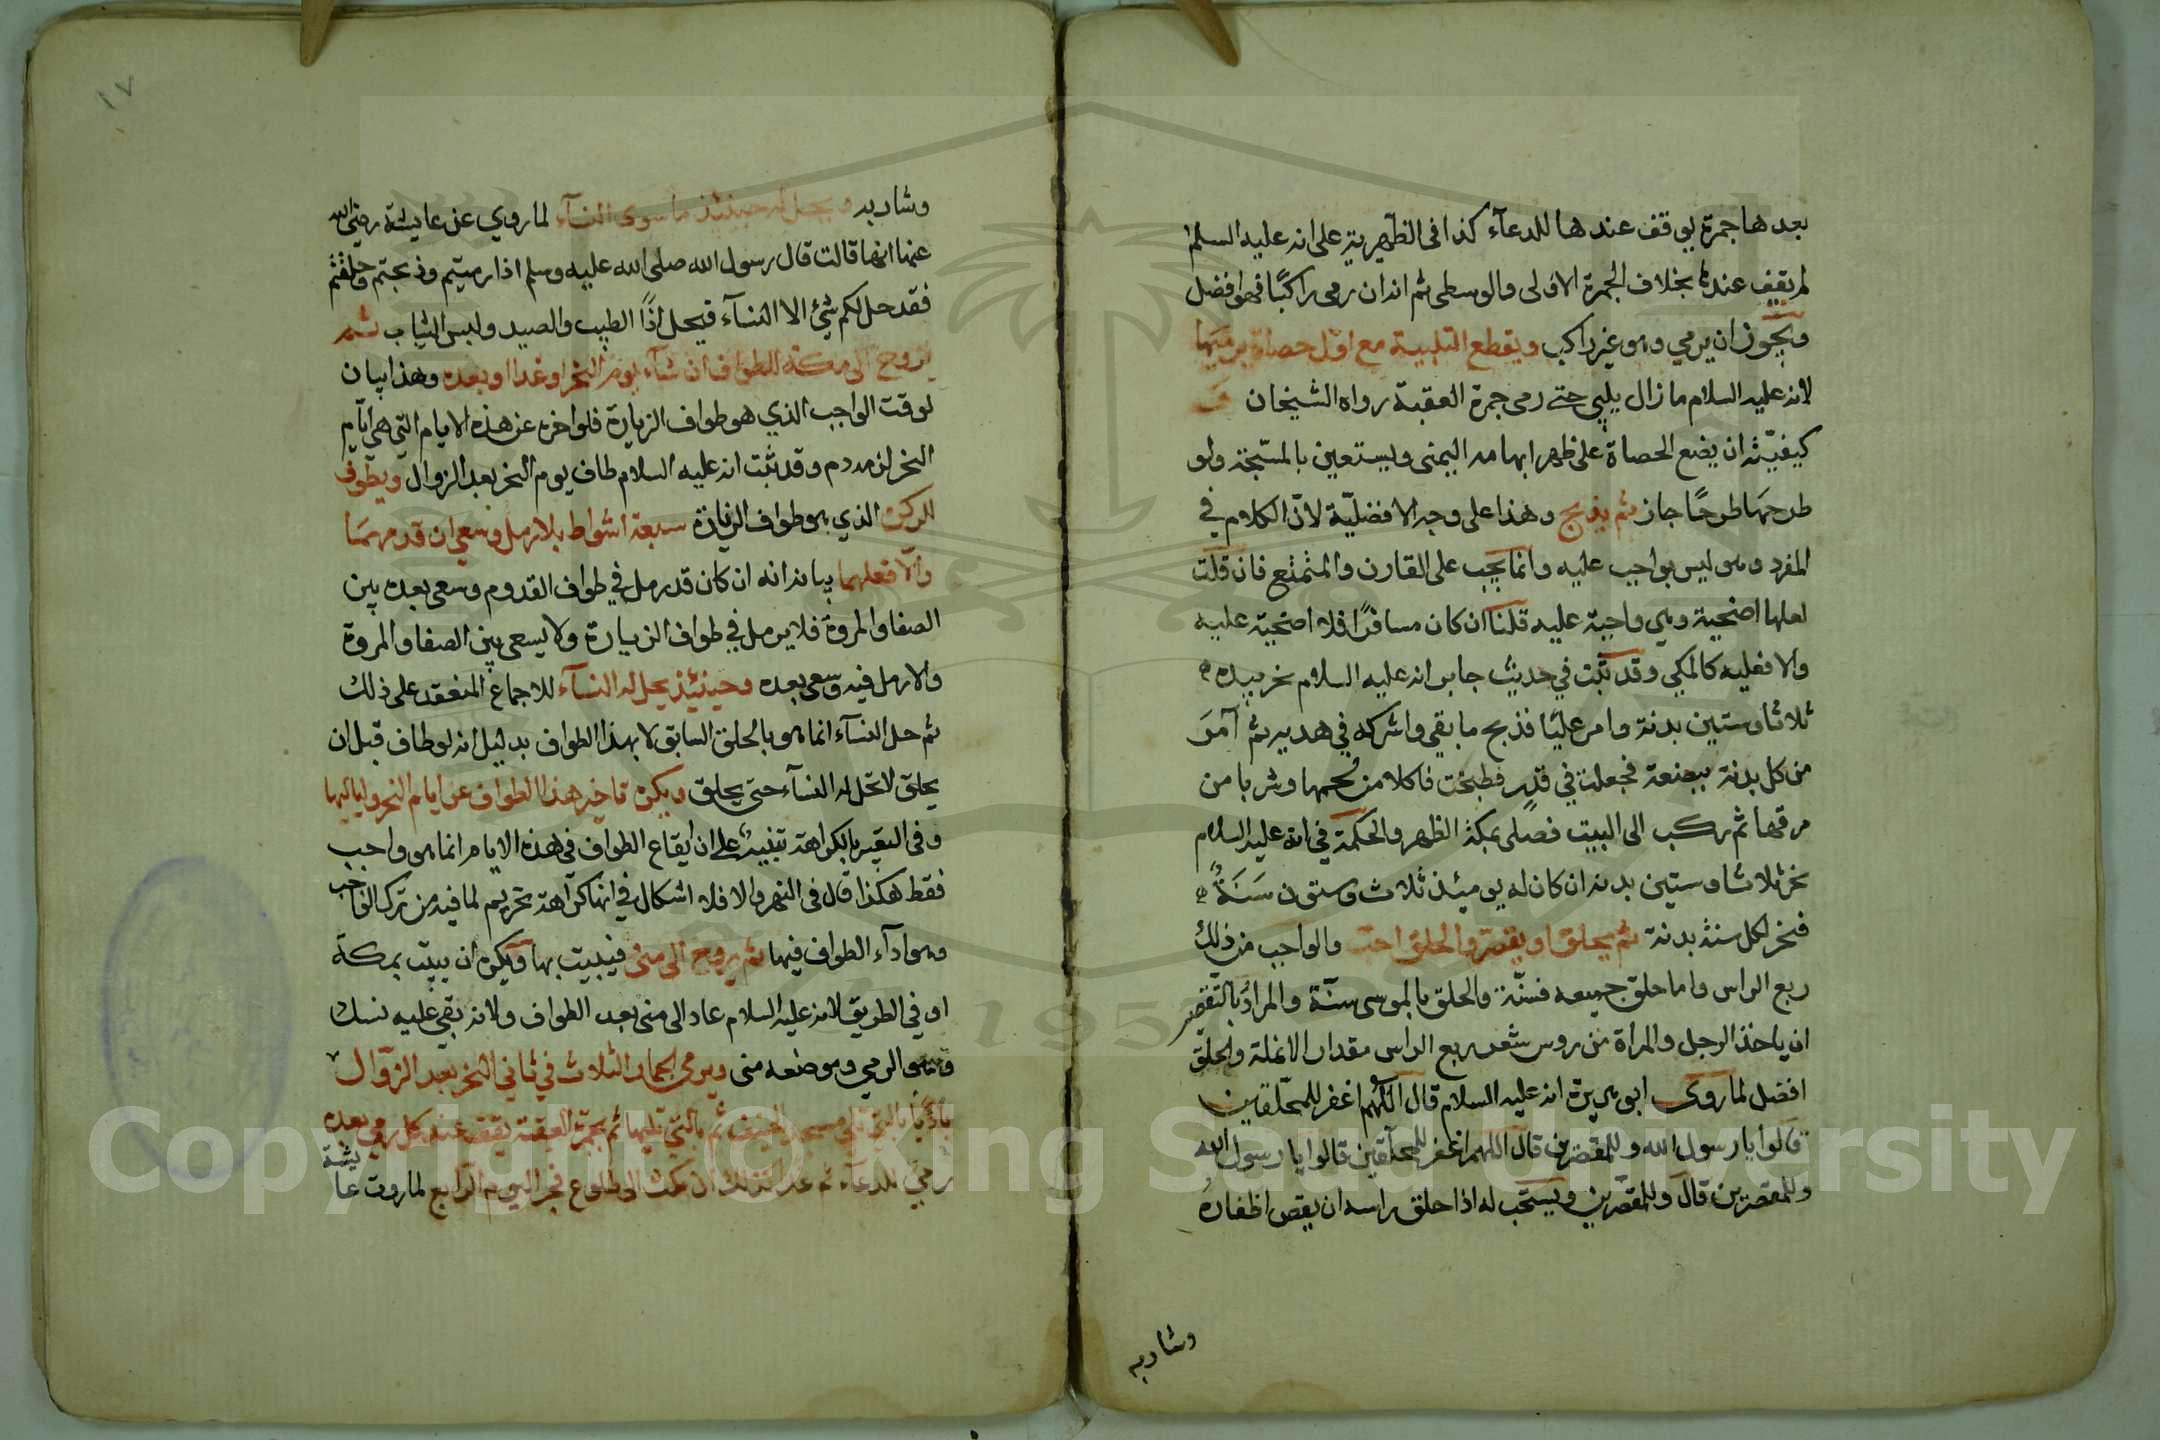 بعدها جمرة يوقف عندها للدعآء كذا فى الظهيرية على انه عليه السلم
لم يقف عندها بخلاف الجمرة الاولى والوسطى ثم انه ان رمى راكبًا فهو افضل
ويجوز ان يرمي وهو غير راكب ويقطع التلبية مع اول حصاة يرميها
لانه عليه السلام ما زال يلبي حتى رمى جمرة العقبة رواه الشيخان
كيفيته ان يضع الحصاة على ظهر ابهامه اليمنى ويستعين بالمسبحة ولو
طرحها طرحًا جاز ثم يذبح وهذا على وجه الافضلية لان الكلام في
المفرد وهو ليس بواجب عليه وانما يجب على القارن والمتمتع فان قلت
لعلها اضحية وهي واجبة عليه قلنا ان كان مسافرًا فلا اضحية عليه
والا فعليه كالمكي وقد ثبت في حديث جابر انه عليه السلام نحر بيده
ثلاثا وستين بدنة وامر عليًا فذبح ما بقي واشركه في هديه ثم آمَرَ
من كل بدنة ببضعة فجعلت في قدر فطبخت فاكلا من لحمها وشربا من
مرقها ثم ركب الى البيت فصلى بمكة الظهر والحكمة في انه عليه السلام
نحر ثلاثا وستين بدنه ان كان له يوميئذ ثلاث وستون سَنَةً
فنحر لكل سنة بدنة ثم يحلق او يقصر والحلق احب والواجب من ذلك
ربع الراس واما حلق جميعه فسنّة والحلق بالموسى سنة والمراد بالتقصير
ان ياخذ الرجل والمراة من روس شعر ربع الراس مقدار الانملة والحلق
افضل لما روى ابو هريرة انه عليه السلام قال اللهم اغفر للمحلقين
قالوا يا رسول الله وللمقصرين قال اللهم اغفر للمحلقين قالوا يا رسول الله
وللمقصرين قال وللمقصرين ويستحب له اذا حلق راسه ان يقص اظفاره
وشاربه
١٧
وشاربه ويحل له حينئذ ما سوى النسآء لما روي عن عايشة رضي الله
عنها انها قالت قال رسول الله صلى الله عليه وسلم اذا رميتم وذبحتم وحلقتم
فقد حل لكم شئ الا النسآء فيحل اذًا الطيب والصيد ولبس الثياب ثم
يروح الى مكة للطواف ان شآء يوم النحر او غدا او بعده وهذا بيان
لوقت الواجب الذي هو طواف الزيارة فلو اخره عن هذه الايام التي هي ايّام
النحر لزمه دم وقد ثبت انه عليه السلام طاف يوم النحر بعد الزوال ويطوف
للركن الذي هو طواف الزيارة سبعة اشواط بلا رمل وسعي ان قدمهما
والا فعلهما بيانه انه ان كان قد رمل في طواف القدوم وسعى بعده بين
الصفا والمروة فلا يرمل في طواف الزيارة ولا يسعى بين الصفا والمروة
والا رمل فيه وسعى بعده وحينئذ يحل له النسآء للاجماع المنعقد على ذلك
ثم حل النسآء انما هو بالحلق السابق لا بهذا الطواف بدليل انه لو طاف قبل ان
يحلق لا تحل له النسآء حتى يحلق ويكره تاخير هذا الطواف عن ايام النحر ولياليها
وفى التعبير بالكراهة تنبيه على ان ايقاع الطواف فى هذه الايام انما هو واجب
فقط هكذا قال فى النهر والا فلا اشكال في انها كراهة تحريم لما فيه من ترك الواجب
وهو ادآء الطواف فيها ثم يروح الى منى فيبيت بها ويكره ان يبيت بمكة
او في الطريق لانه عليه السلام عاد الى منى بعد الطواف ولانه بقي عليه نسك
وهو الرمي وموضعه منى ويرمي الجمار الثلاث في ثاني النحر بعد الزوال
بادئًا بالتي تلي مسجد الخيف ثم بالتي تليها ثم بجمرة العقبة يقف عند كل رمي بعده
رمي للدعآء ثم غدا كذلك ان مكث الى طلوع فجر اليوم الرابع لما روت عايشة
Copyright © King Saud University
1957